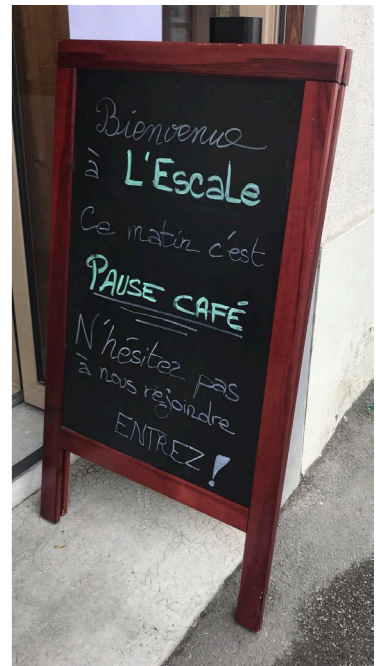 Bienvenue
à L'Escale
Ce matin c'est
PAUSE CAFÉ
N'hésitez pas
à nous rejoindre
ENTREZ !